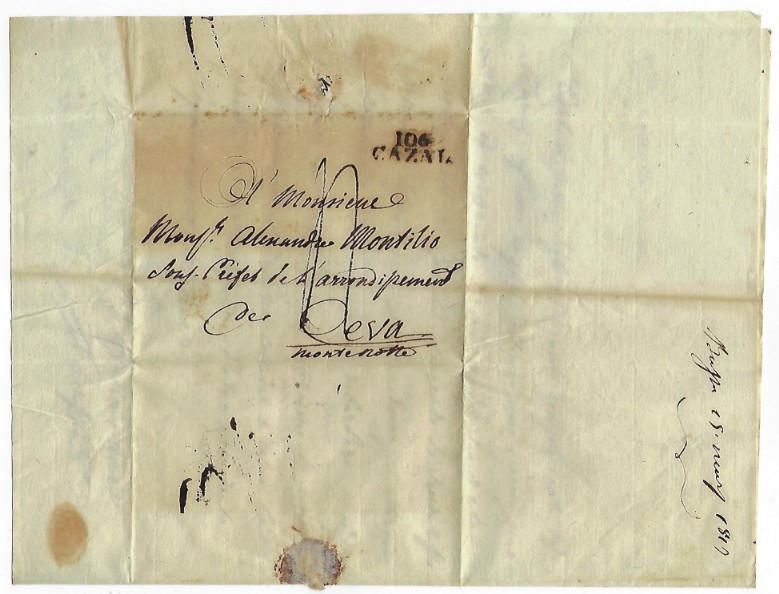 106
CAZAL
A' Monsieur
Monsr. Alexandre Montilio
Sous-Préfet de L'arrondissement
de Ceva
montenotte
15 1810